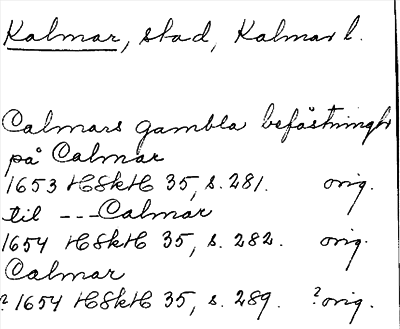 Kalmar, stad, Kalmar l.
Calmars gambla befästninghr
på Calmar
1653 HSkH 35, s. 281. orig.
til --- Calmar
1654 HSkH 35, s. 282. orig.
Calmar
? 1654 HSkH 35, s. 289. ? orig.